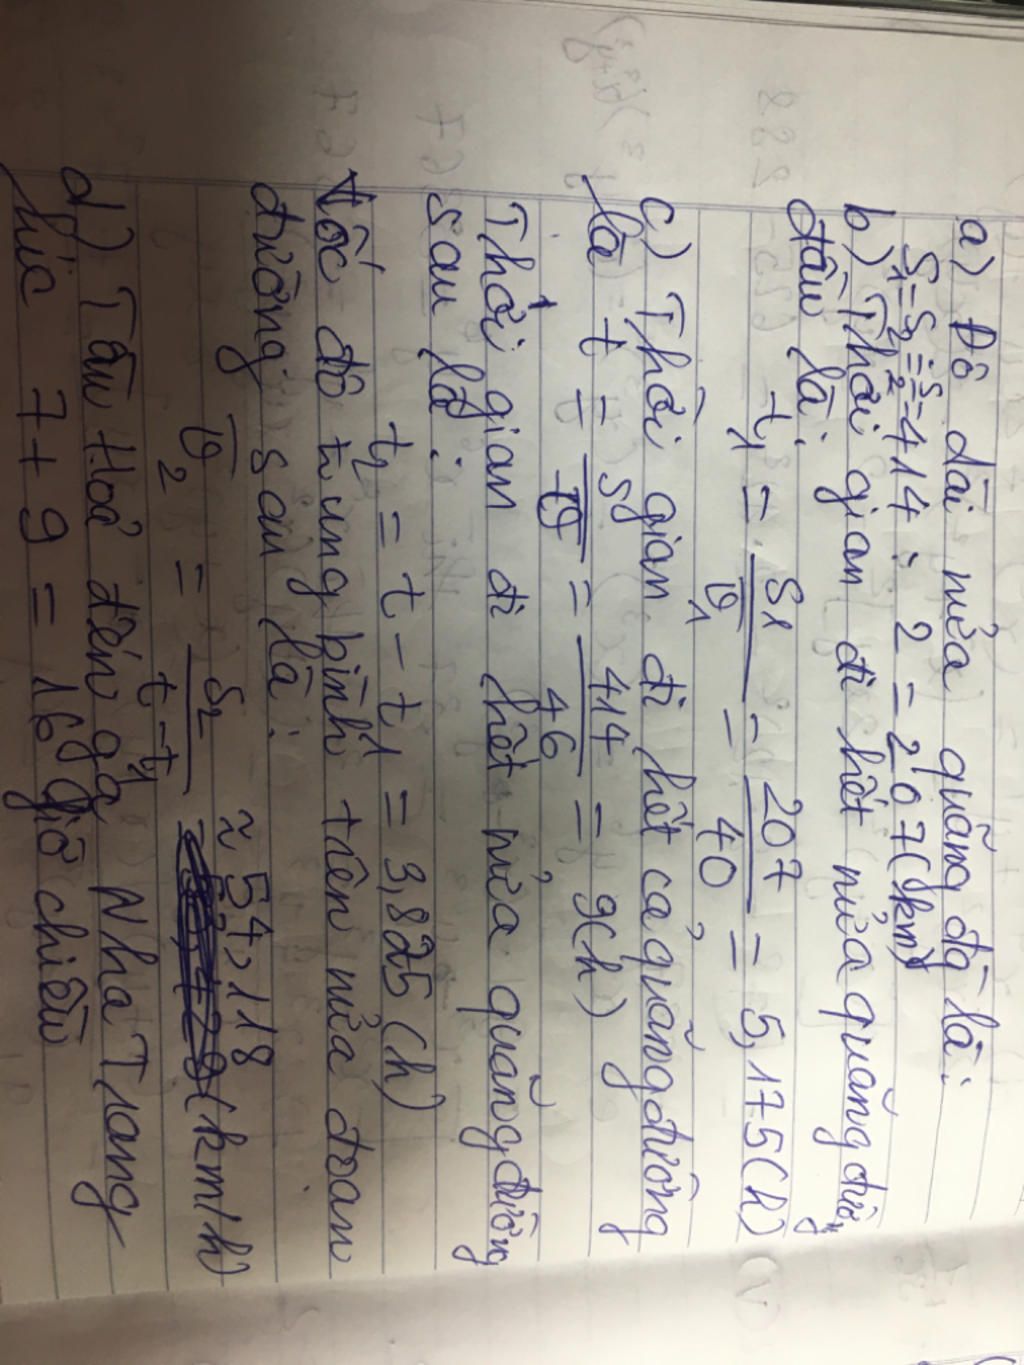 a) Độ dài nửa quãng đg là:
S₁ = S₂ = S/2 = 414 : 2 = 207 (km)
b) Thời gian đi hết nửa quãng đường
đầu là:
t₁ = S₁/v₁ = 207/40 = 5,175 (h)
c) Thời gian đi hết cả quãng đường
là t = S/v = 414/46 = 9 (h)
Thời gian đi hết nửa quãng đường
sau là:
t₂ = t - t₁ = 3,825 (h)
tốc độ trung bình trên nửa đoan
đường sau là:
v₂ = S₂/t-t₁ ≈ 54,118 (km/h)
d) Tàu Hoả đến ga Nha Trang
lúc 7 + 9 = 16 giờ chiều